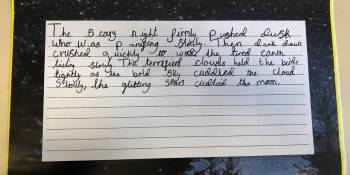 The scary night firmly pushed dusk
who was panting slowly. Then dark dawn
crushed quickly to wake the tired earth
slowly. The terrified clouds held the birds
tightly as the bold sky cuddled the cloud
slowly, the glitting stars cuddled the moon.